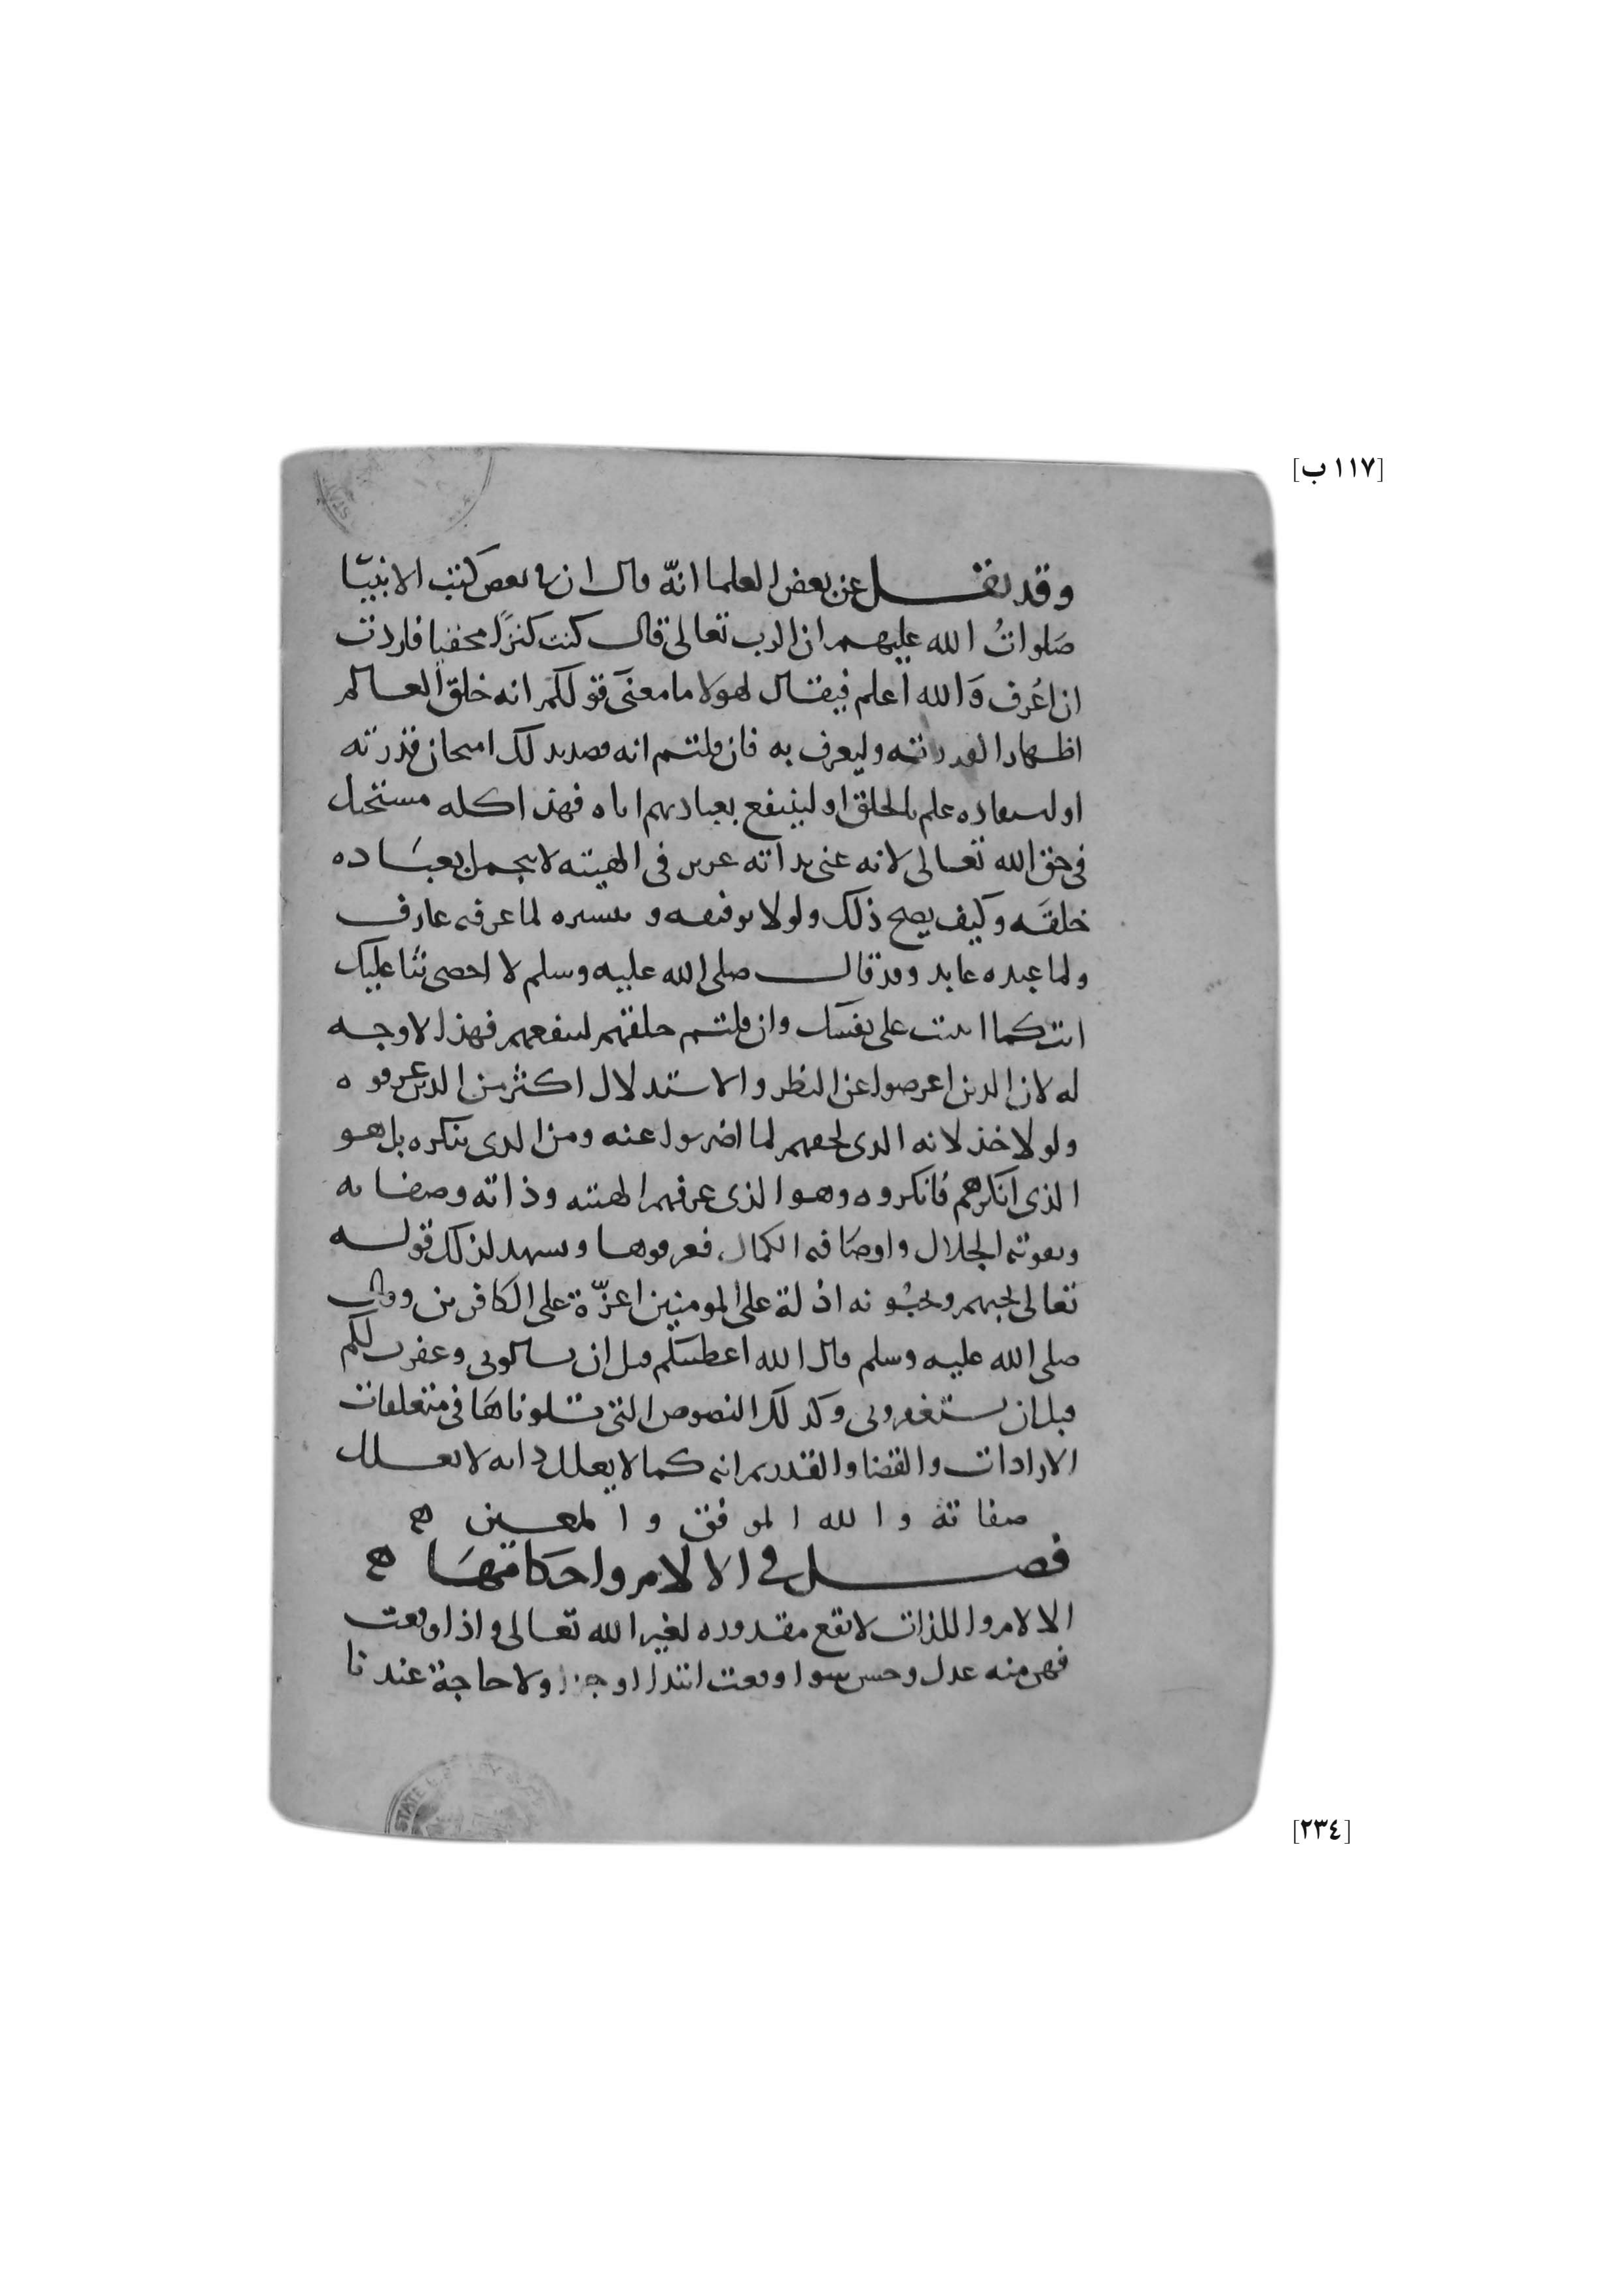 [١١٧ ب]
وقد نقل عن بعض العلما انّه قال ان في بعض كتب الانبيا
صَلواتُ الله عليهم ان الرب تعالى قال كنت كنزًا مخفيا فاردت
ان اعُرف وَالله أعلم فيقال لهولا ما معنى قولكم انه خلق العالم
اظهارا لقدرته وليعرف به فان قلتم انه قصد بذلك امتحان قدرته
او استفاده علم بالخلق او لينتفع بعبادتهم اياه فهذا كله مستحيل
في حق الله تعالى لانه غنى بذاته عزيز في الهيته لا يتجمل بعبَاده
خلقَه وكيف يصح ذلك ولولا توفيقه و تيسيره لما عرفه عارف
ولما عبده عابد وقد قال صلى الله عليه وسلم لا احصى ثنا عليك
انت كما اثنيت على نفسك وان قلتم خلقهم لينفعهم فهذا لا وجه
له لان الذين اعرضوا عن النظر والاستدلال اكثر من الذين عرفوه
ولولا خذلانه الذى لحقهم لما اضربوا عنه ومن الذى ينكره بل هو
الذى انكرهم فانكروه وهو الذى عرفهم الهيته وذاته وصفاته
ونعوته الجلال واوصَافه الكمال فعرفوها ويشهد لذلك قوله
تعالى يحبهم ويحبُونه اذلة على المومنين اعزّة على الكافرين وقال
صلى الله عليه وسلم قال الله اعطيتكم قبل ان تسالونى وغفرت لكم
قبل ان تستغفرونى وكذلك النصوص التى تلوناهَا في متعلقات
الارادات والقضا والقدر ثم انه كما لا يعلل ذاته لا تعلل
صفاته والله الموفق والمعين ه
فصل في الالام واحكامهَا ه
الالام واللذات لا تقع مقدوره لغير الله تعالى واذا وقعت
فهى منه عدل وحسن سوا وقعت ابتدا او جزا ولا حاجة عندنا
[٢٣٤]